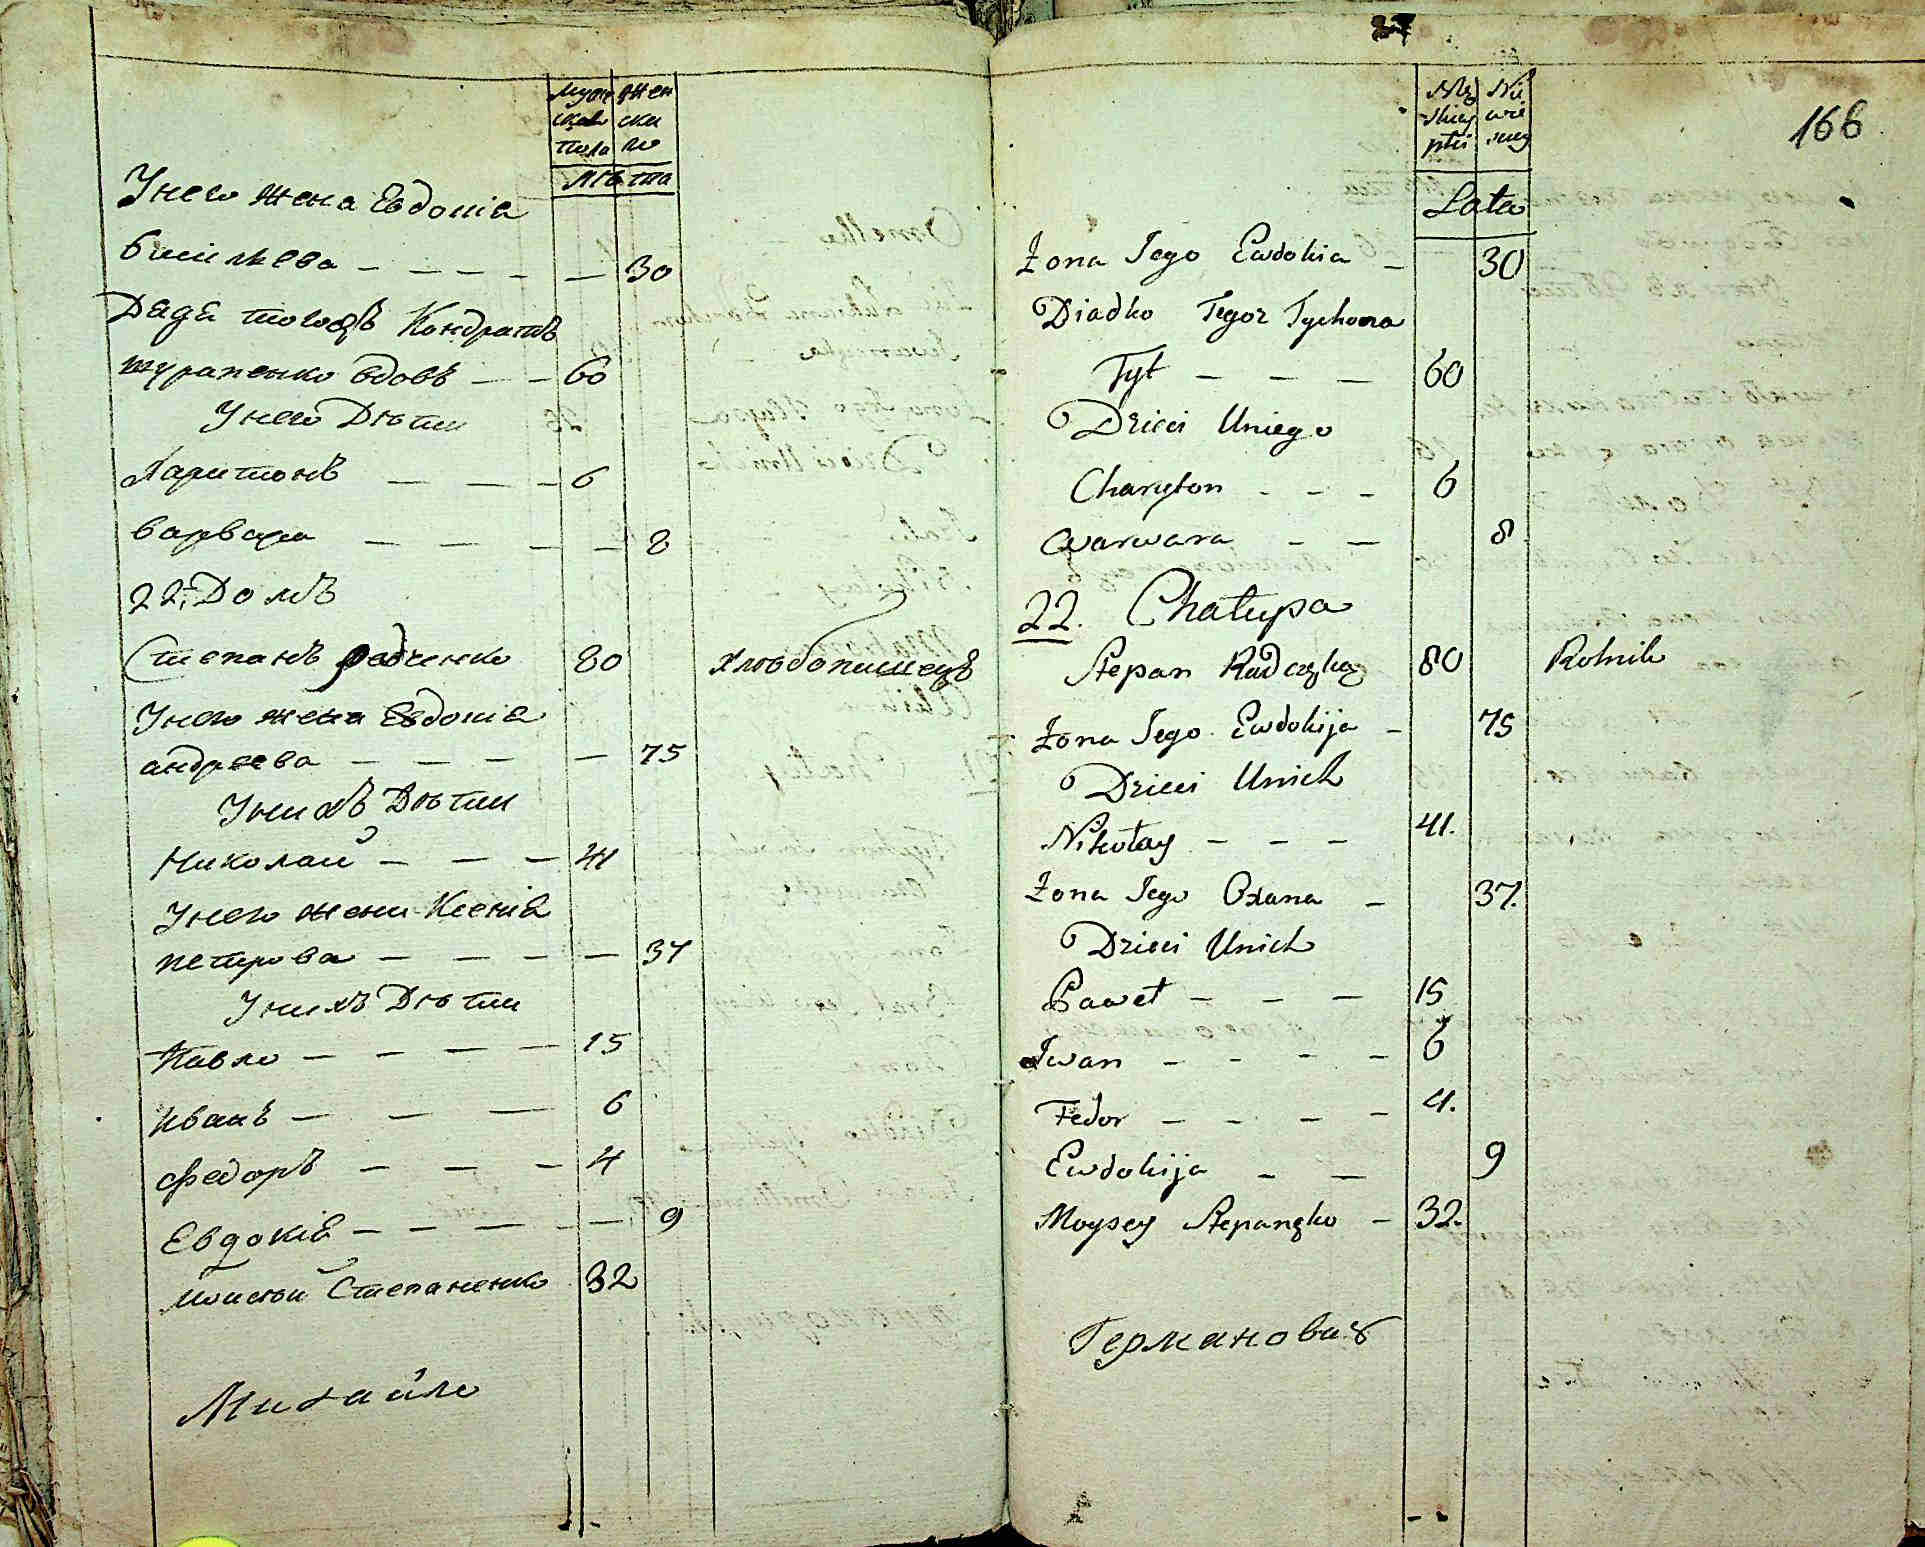 Муже Жен
ска ски
пола го
Лѣта
У него жена Евдокіа
30
Дядя тогожъ Кондратъ
вдовъ — — 60
У него Дѣти
Харитонъ — — — 6
Варвара — — — — — 8
22. Домъ
Степанъ Радченко 80 хлѣбопашецъ
У него жена Евдокіа
андреева — — — — — 75
У нихъ Дѣти
Николай — — — 41
У него жена Ксеніа
петрова — — — — — 37
У нихъ Дѣти
Павло — — — — 15
Иванъ — — — 6
Федоръ — — — 4
Евдокіа — — — — — 9
Моисѣй Степаненко 32
Михайло
166
Lata
Żona Jego Ewdokia — 30
Diadko Tegoż Tychona
Tyt — — — 60
Dzieci Uniego
Charyton — — — 6
Warwara — — 8
22. Chałupa
Stepan Radczenko 80 Rolnik
Żona Jego Ewdokija — 75
Dzieci Unich
Nikołay — — — 41.
Żona Jego Oxana — 37.
Dzieci Unich
Paweł — — — 15
Iwan — — — — 6
Fedor — — — — 4.
Ewdokija — — 9
Moysey Stepanenko — 32.
Германовичъ